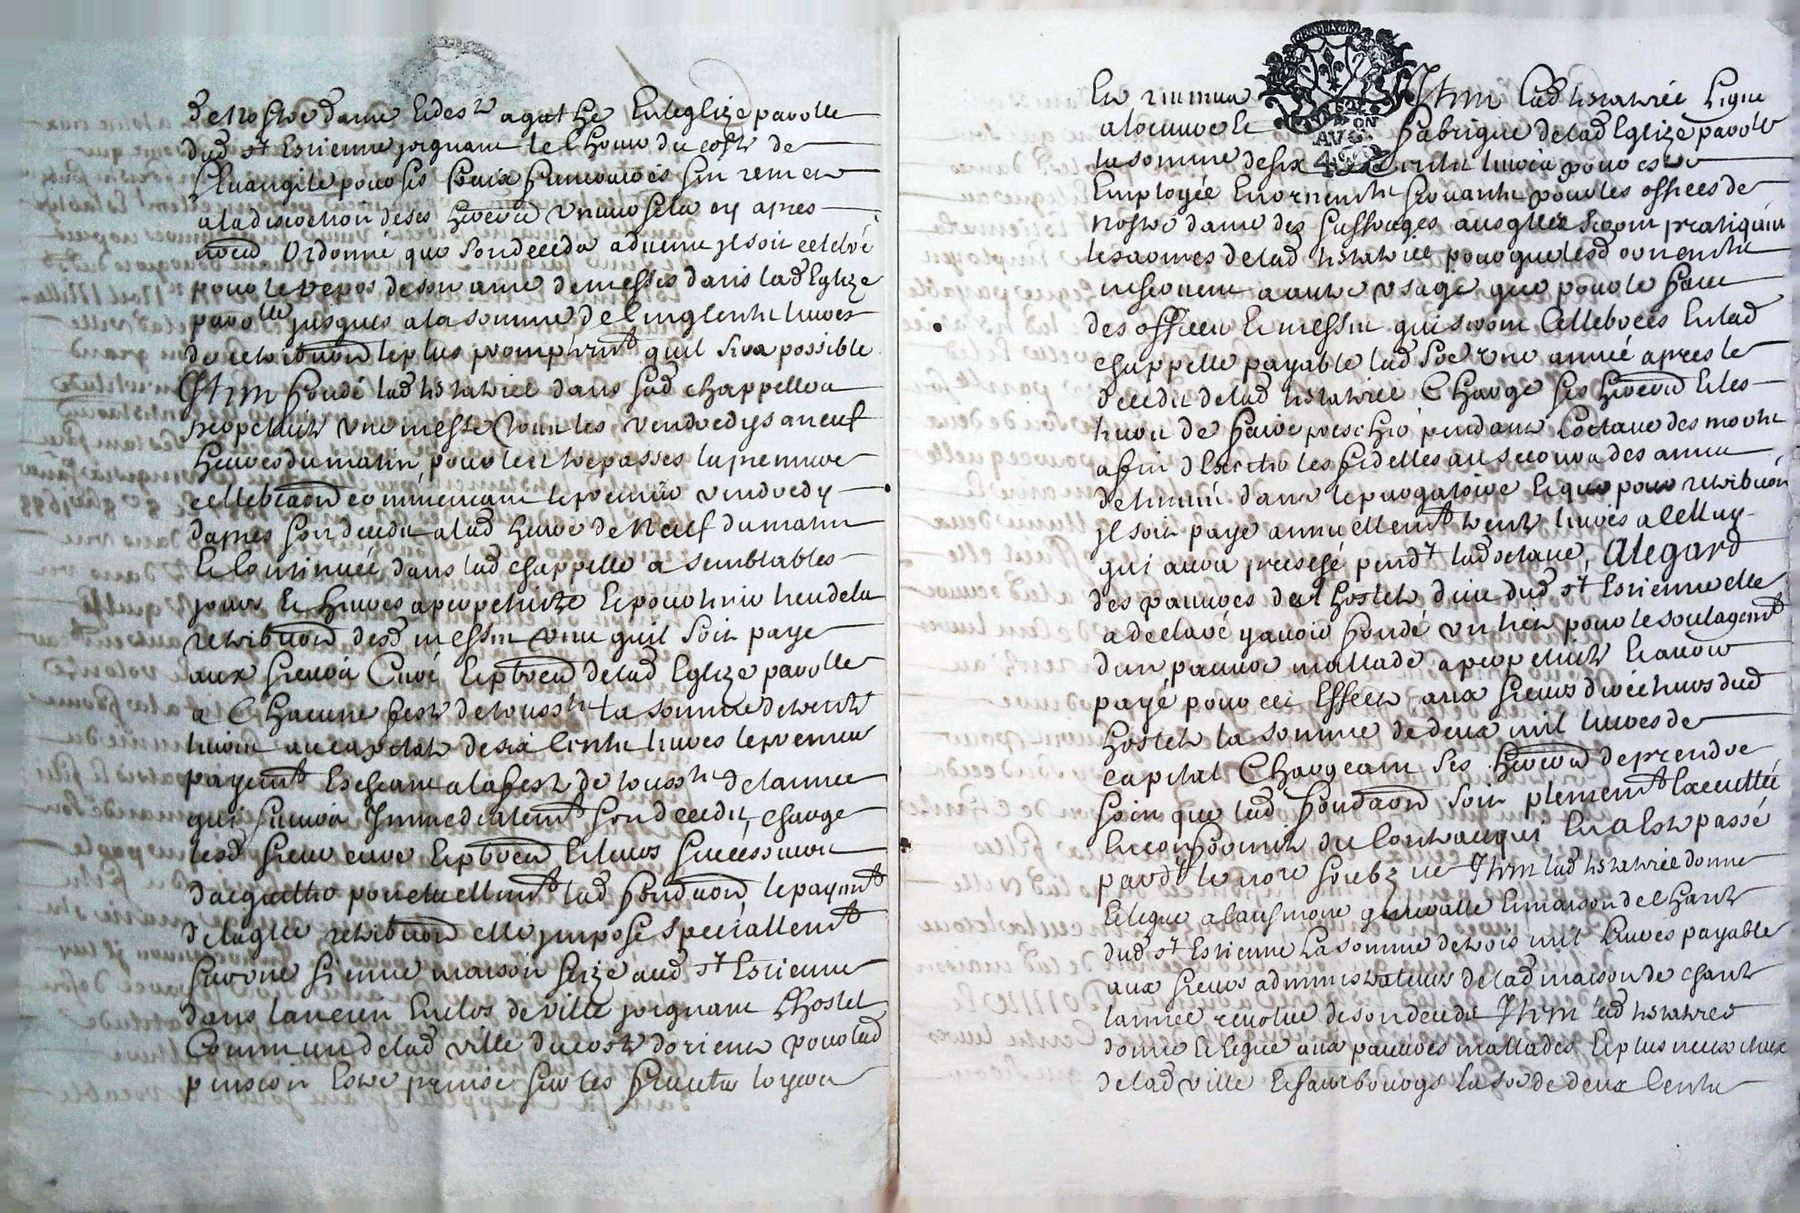 de nostre dame et de s.te agathe en leglize parolle
dud s.t Estienne joignant le Choeur du costé de
Levangile pour ses fraix funeraires sen remet
a la discretion de ses heretrs cy apres
nom.d Ordonne que son deceda advenu il soit celebré
pour le repos de son ame de messes dans lad Eglize
parolle jusques a la somme de Cinq Cents livres
de retribuon le plus promptem.t quil sera possible
Item fonde lad testatrice dans sad chappelle a
perpetuité une messe tous les vendredys a neuf
heures du matin pour les trepasses la premiere
cellebraon commencant le premier vendredy
dapres son decedz a lad heure de Neuf du matin
Et Continuée dans lad chappelle a semblables
jours et heures a perpetuité Et pour tenir lieu de la
retribuon desd messes veut quil soit payé
aux sieurs Curé Et pbres de lad Eglize parolle
a Chacune feste de touss.ts la somme de trente
livres au capital de six Cents livres le premier
payem.t Escheant a la feste de touss.ts de lannee
qui suivra Immediatem.t son decedz, charge
lesd sieurs curé Et pbres Et leurs successeurs
dacquitter ponctuellem.t lad fondaon, le payem.t
de laqlle retribuon elle impose speciallem.t
sur une sienne maison size aud s.t Estienne
dans lancien Enclos de ville joignant Lhostel
Commun de lad ville du costé dorient pour lad
pension Estre prinse sur les fruits loyers
Et revenus Item Lad testatrice Legue
a loeuvre Et fabrique de lad Eglize parolle
la somme de six Cents livres pour estre
Employée En ornements servants pour les offices de
nostre dame des suffrages ausqlles seront pratiquées
les armes de lad testatrice pour que lesd ornements
ne servent a autre usage que pour le faire
des offices Et messes qui seront Cellebrees En lad
chappelle payable lad so.e une année apres le
decedz de lad testatrice Charge ses heret.rs Et les
leurs de faire prescher pendant Loctave des morts
afin dExciter les fidelles au secours des ames
detenues dans le purgatoire Et que pour retribuon
il soit payé annuellem.t trente livres a celluy
qui aura presché pend.t lad octave, Alegard
des pauvres de lhostel dieu dud s.t Estienne elle
a declaré y avoir fondé un lict pour le soulagem.t
dun pauvre mallade a perpetuité Et avoir
payé pour cet Effect aux sieurs directeurs dud
hostel la somme de deux mil livres de
capital Chargeant ses heret.rs de prendre
soin que lad fondaon soit plenem.t Executtée
En conformité du Contract qui En a Esté passé
pard.t le no.re soubz.né Item lad testatrice donne
Et legue a lausmone generalle Et maison de charité
dud s.t Estienne La somme de trois mil livres payable
aux sieurs administrateurs de lad maison de charité
lannee revolue de son decedz Item lad testatrice
donne Et legue aux pauvres mallades Et plus necessiteux
de lad ville Et faurbourgs La so.e de deux Cents